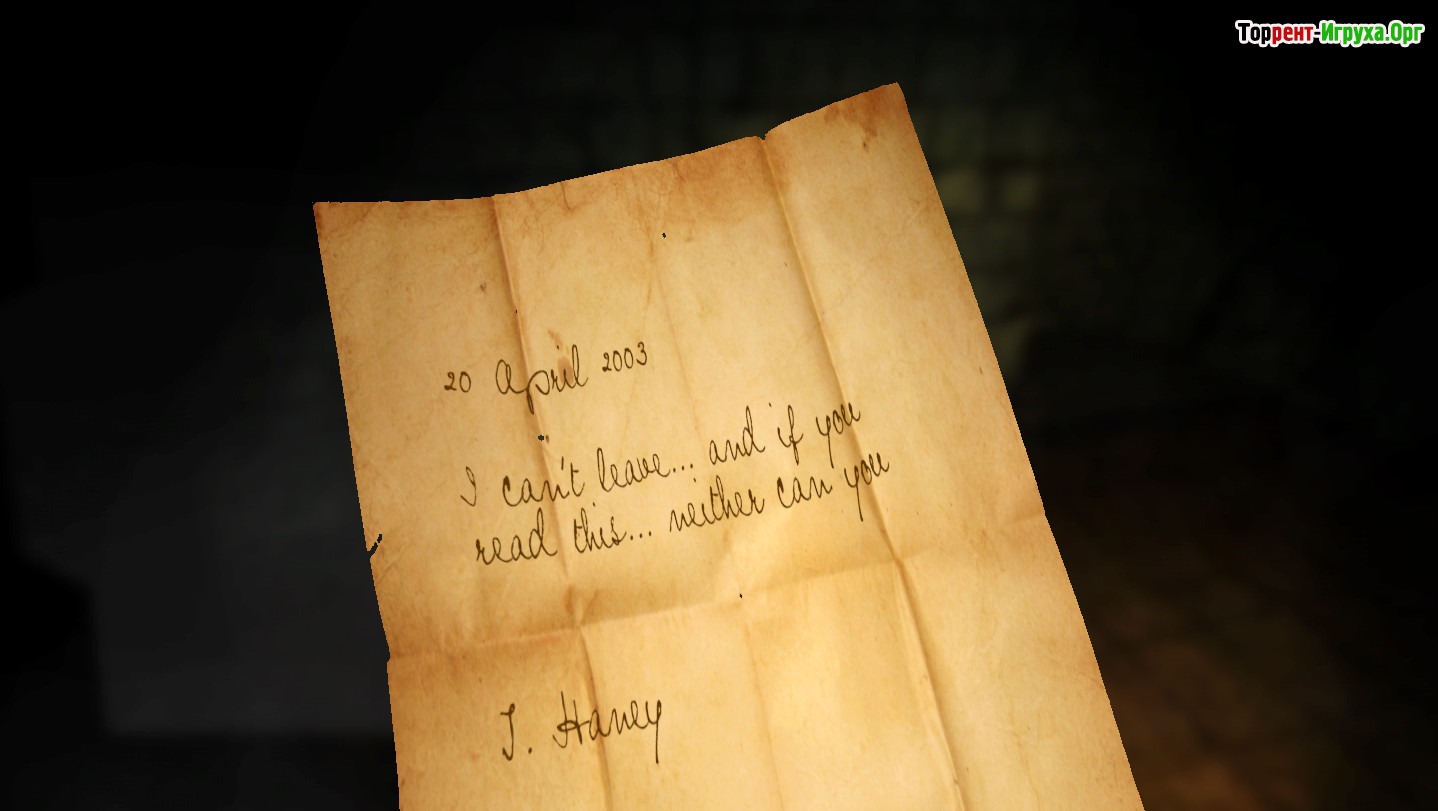 Торрент-Игруха.Орг
20 April 2003
I can't leave... and if you
read this... neither can you
J. Haney